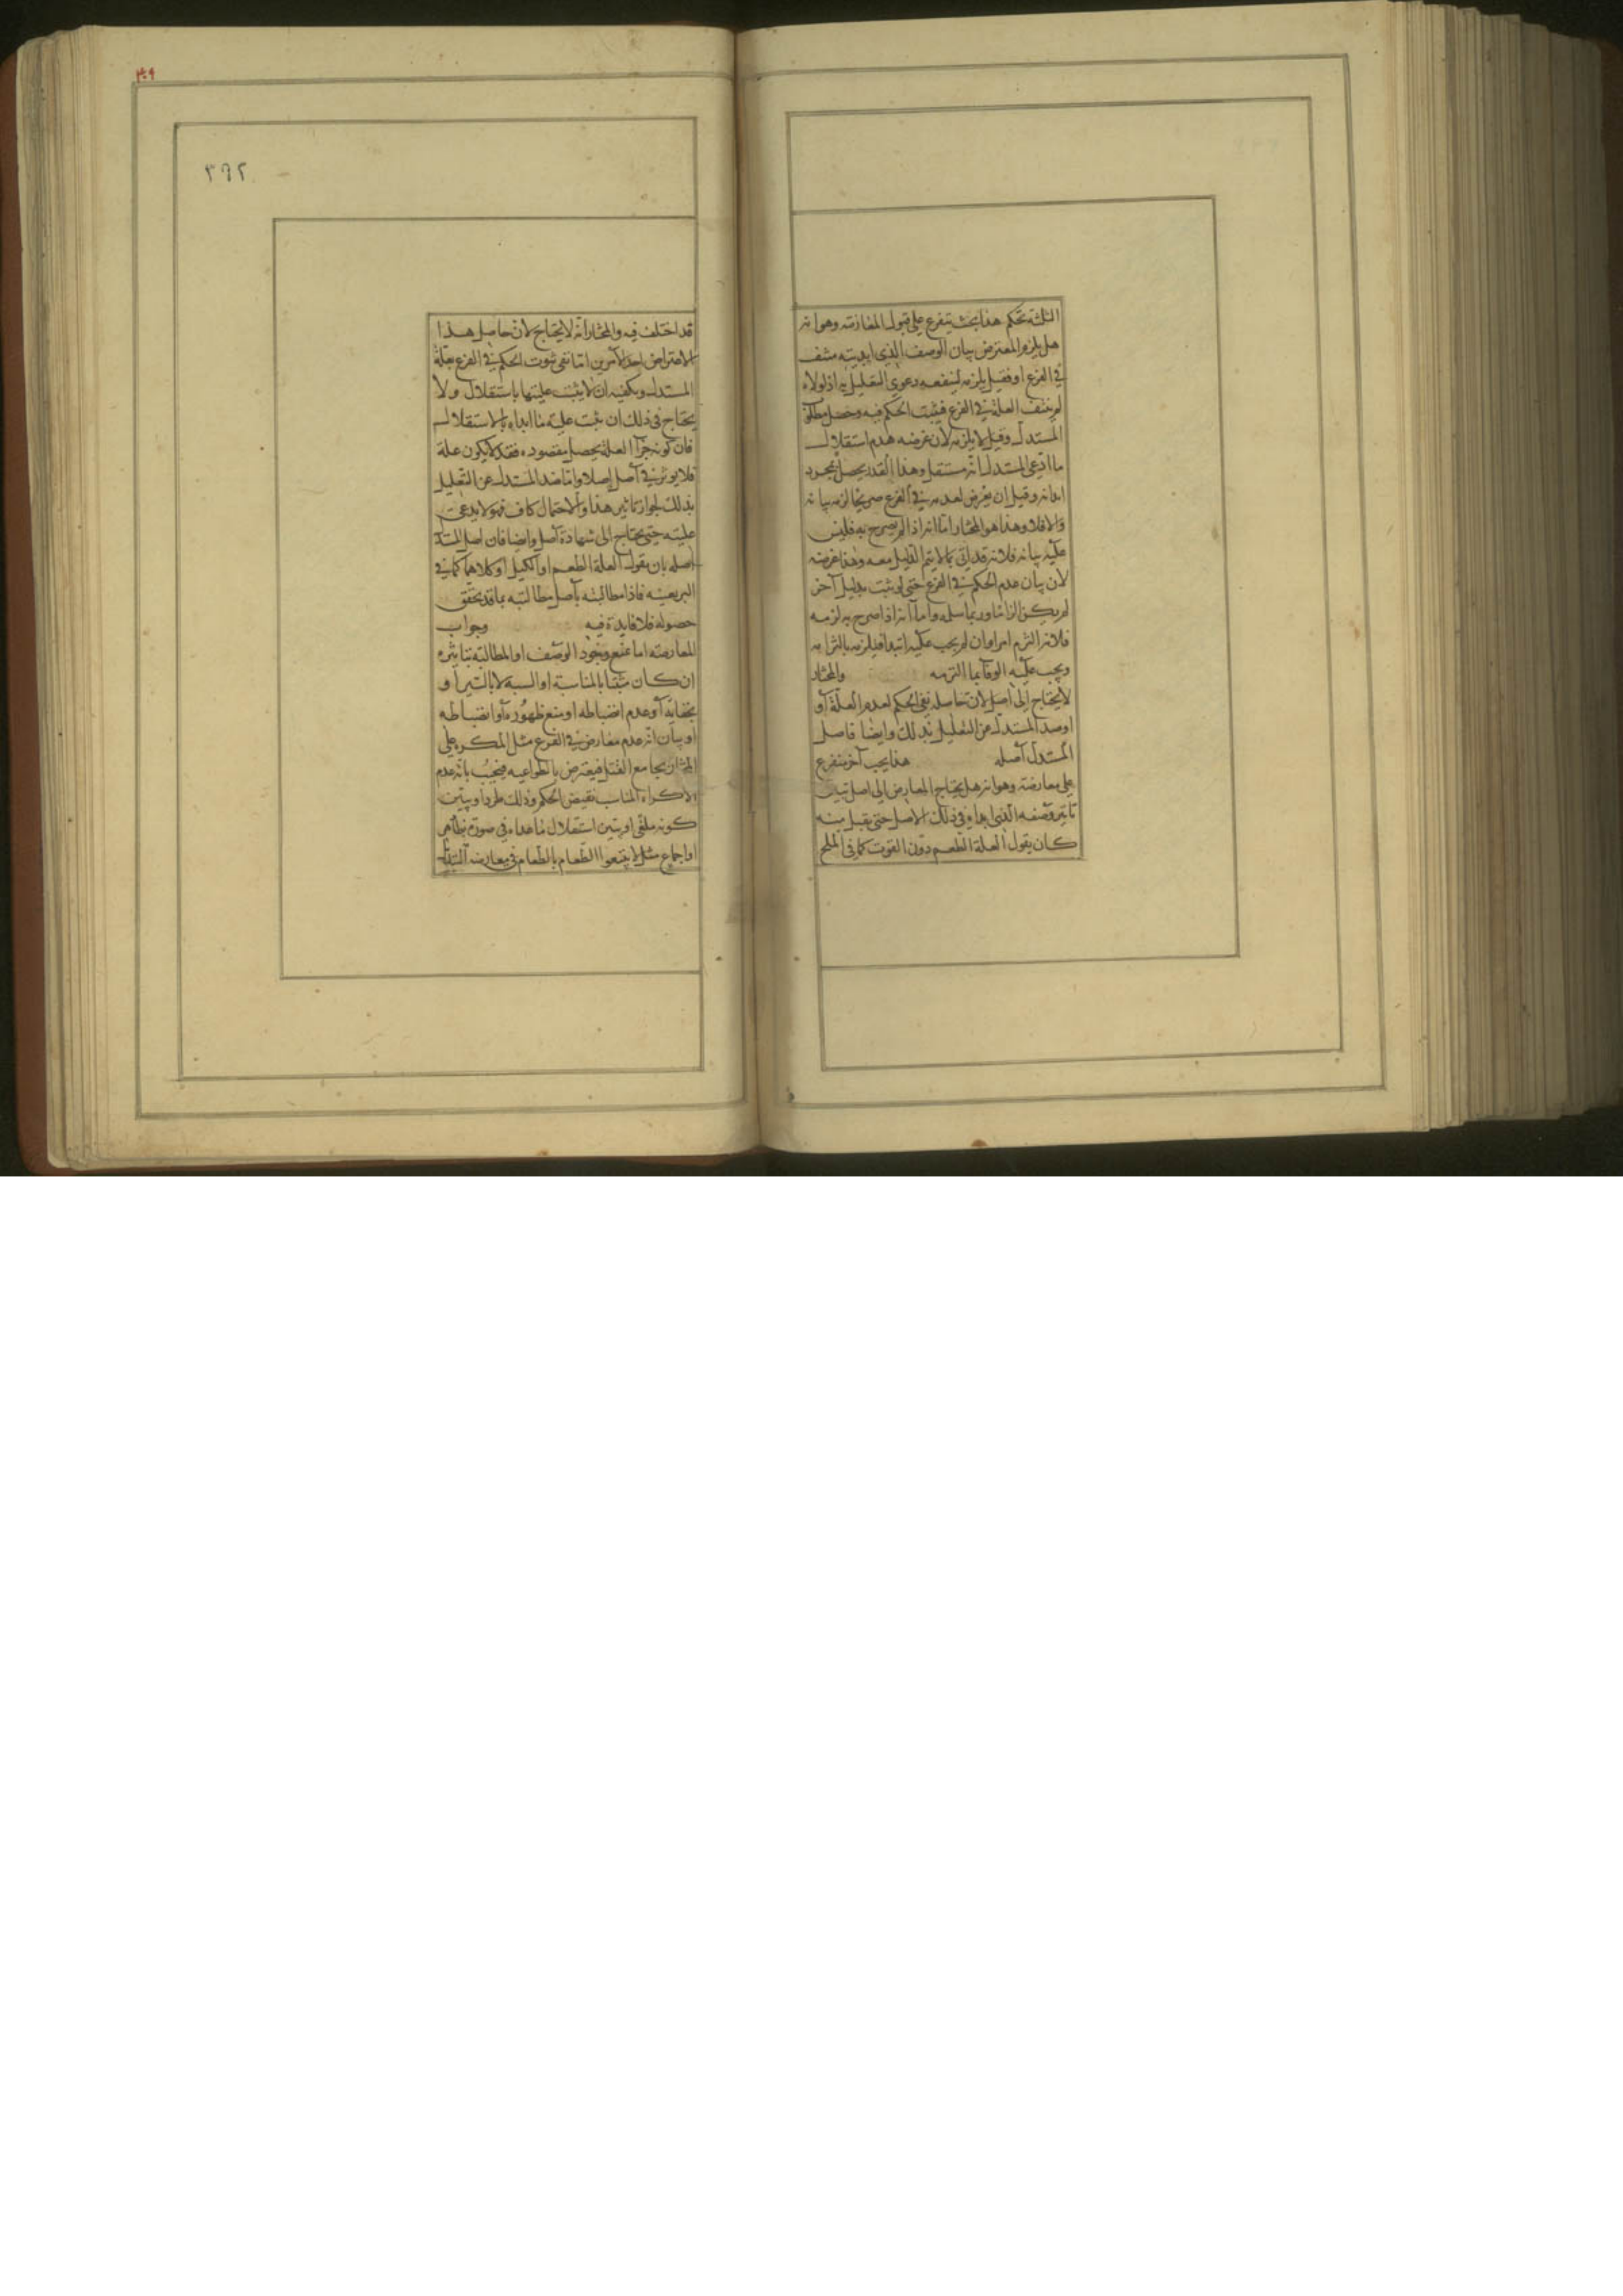 الثلثة تحكم هذا بحث يتفرع على قبول المعارضة وهو انه
هل يلزم المعترض بيان الوصف الذى ابديته منتف
فى الفرع او فقيل يلزمه لينفعه دعوى التعليل به اذ لولاه
لم ينتف العلة فى الفرع فيثبت الحكم فيه وحصل مطلوب
المستدل وقيل لا يلزمه لان غرضه هدم استقلال
ما ادعى المستدل انه مستقل وهذا القدر يحصل بمجرد
ابدائه وقيل ان تعرض لعدمه فى الفرع صريحا لزمه بيانه
والا فلا وهذا هو المختار اما انه اذا لم يصرح به فليس
عليه بيانه فلانه قد اتى بما لا يتم الدليل معه وهذا غرضه
لان بيان عدم الحكم فى الفرع حتى لو ثبت بدليل آخر
لم يكن الزاما وربما سلمه واما انه اذا صرح به لزمه
فلانه التزم امرا وان لم يجب عليه ابتداء فيلزمه بالتزامه
ويجب عليه الوفا بما التزمه والمختار
لا يحتاج الى اصل لان حاصله نفى الحكم لعدم العلة او
او صد المستدل عن التعليل بذلك وايضا فاصل
المستدل اصله هذا بحث آخر يتفرع
على معارضة وهو انه هل يحتاج المعارض الى اصل تبين
تاثير وصفه الذى ابداه فى ذلك الاصل حتى يقبل منه
كان يقول العلة الطعم دون القوت كما فى الملح
٣٠٩
٣٦٢
قد اختلف فيه والمختار انه لا يحتاج لان حاصل هذا
الاعتراض احد الامرين اما نفى ثبوت الحكم فى الفرع بعلة
المستدل ويكفيه ان لا يثبت عليتها باستقلال ولا
يحتاج فى ذلك ان يثبت علية ما ابداه بالاستقلال
فان كونه جزء العلة يحصل مقصوده فقد لا يكون علة
فلا يوثر فى اصل اصلا واما صد المستدل عن التعليل
بذلك لجواز تاثير هذا والاحتمال كاف فهو لا يدعى
عليته حتى يحتاج الى شهادة اصل وايضا فان اصل المستدل
اصله بان يقول العلة الطعم او الكيل او كلاهما كما فى
البر بعينه فاذا مطالبته باصل مطالبته بما قد تحقق
حصوله فلا فايدة فيه وجواب
المعارضة اما بمنع وجود الوصف او المطالبة بتاثيره
ان كان مثبتا بالمناسبة او الشبه لا بالسبر او
بخفائه او عدم انضباطه او منع ظهوره او انضباطه
او بيان انه عدم معارض فى الفرع مثل المكره على
المختار بجامع القتل فيعترض بالطواعيه فيجيب بانه عدم
الاكراه المناسب نقيض الحكم وذلك طرد او يبين
كونه ملغى او يبين استقلال ما عداه فى صورة بظاهر
او اجماع مثل لا تبيعوا الطعام بالطعام فى معارضة